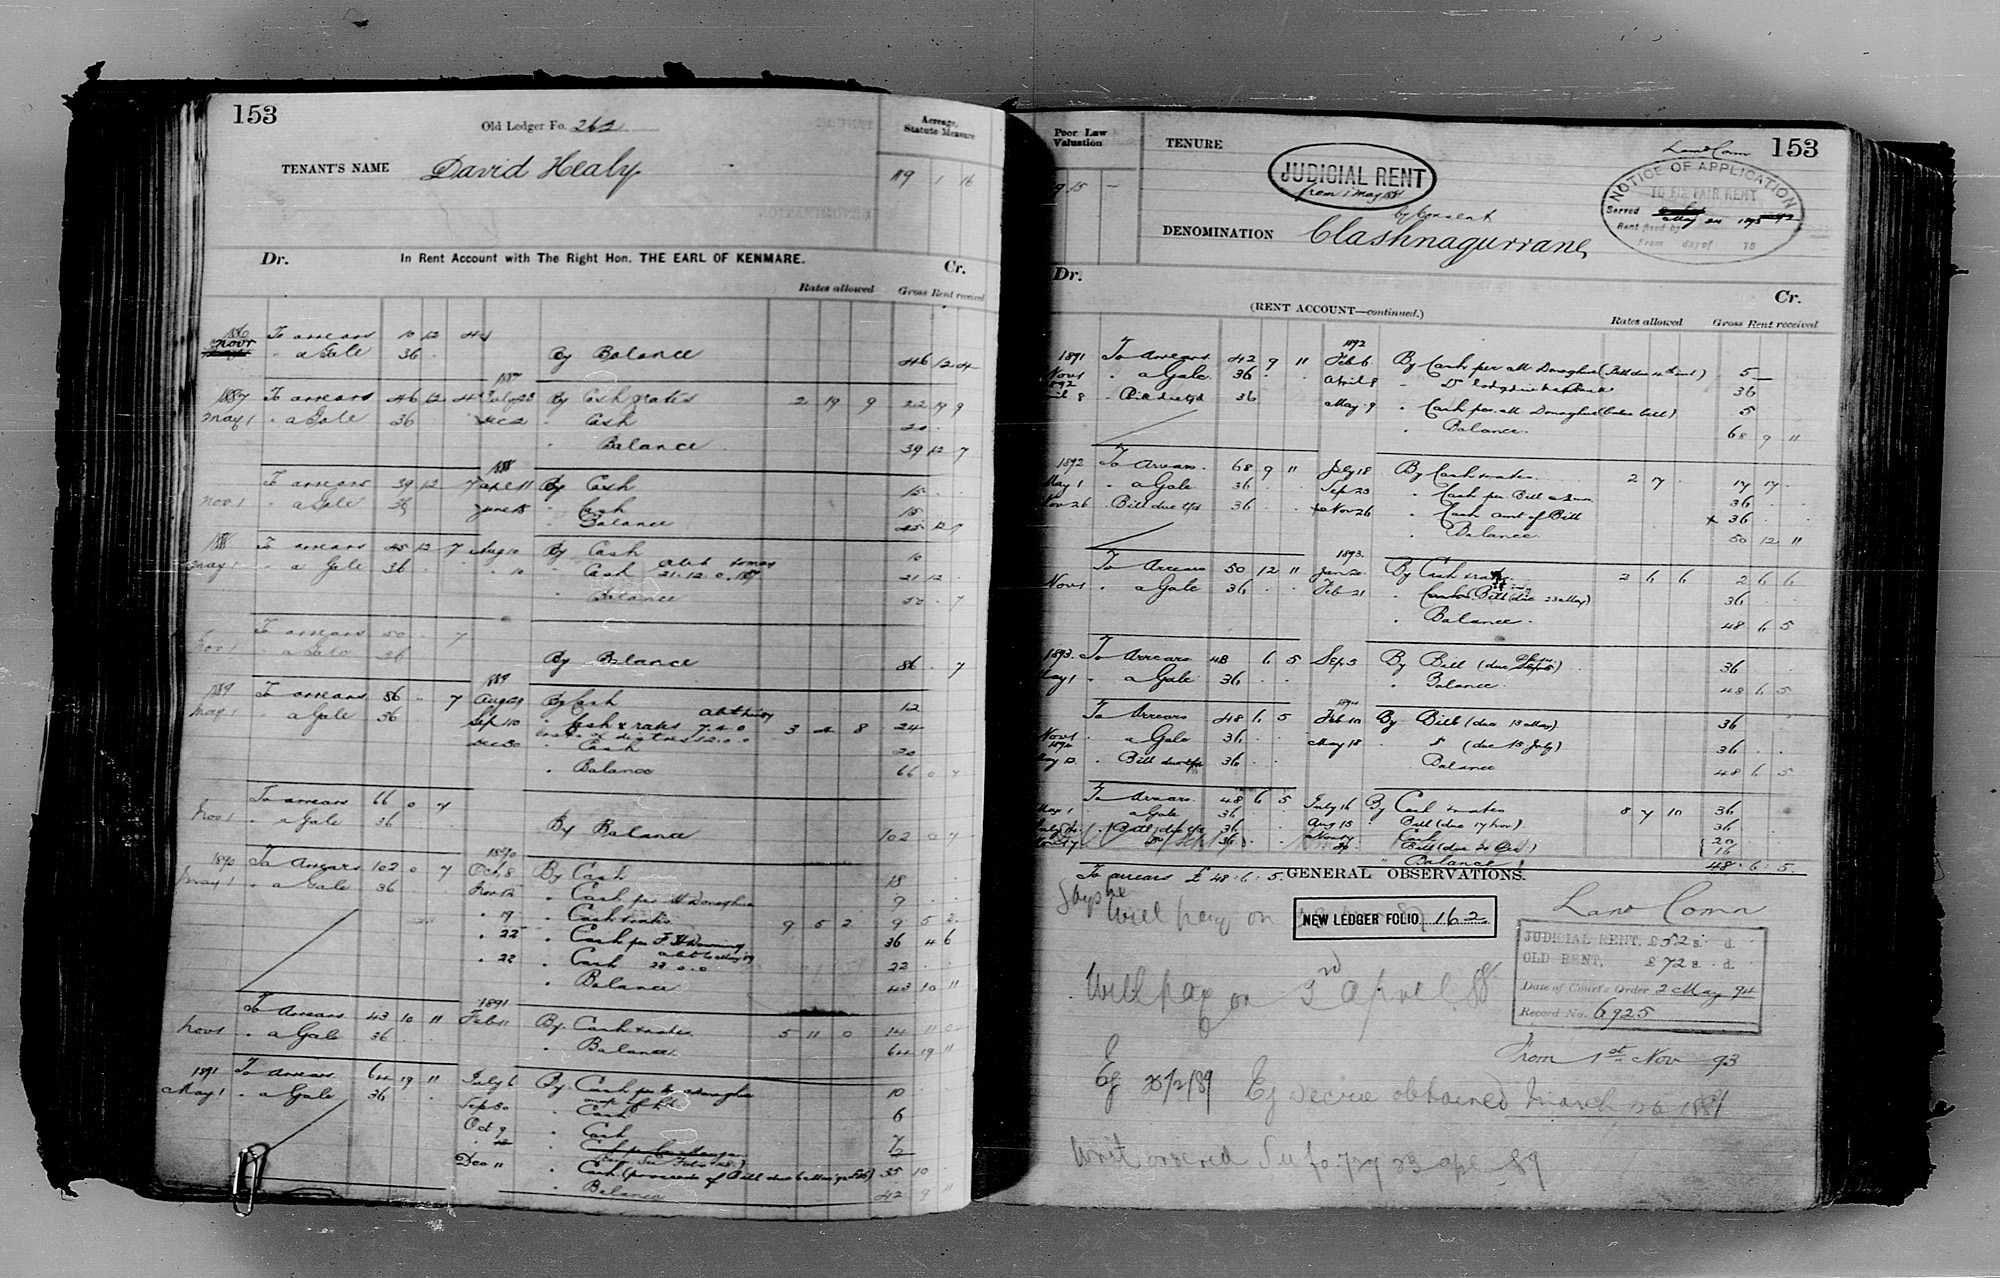 153
Old Ledger Fo. 262
Acreage, Statute Measure
TENANT'S NAME David Healy.
119 1 16
Dr. In Rent Account with The Right Hon. THE EARL OF KENMARE. Cr.
Rates allowed Gross Rent received
1886 To arrears 10 12 4
Novr " a Gale 36 By Balance 46 12 4
1887
1887 To arrears 46 12 4 July 23 By Cash & rates 2 19 9 22 19 9
May 1 " a Gale 36 Dec 2 " Cash 20
" Balance 39 12 7
1888
To arrears 39 12 7 Apl 11 By Cash 15
Nov 1 " a Gale 36 June 15 " Cash 15
" Balance 45 12 7
1888 To arrears 45 12 7 Aug 10 By Cash 10
May 1 " a Gale 36 " 10 " Cash 21.12.0 21 12
" Balance 50 . 7
To arrears 50 . 7
Nov 1 " a Gale 36 By Balance 86 . 7
1889
1889 To arrears 86 . 7 Aug 29 By Cash 12
May 1 " a Gale 36 Sep 10 " Cash & rates 7.4.0 3 4 8 24
costs of distress 2.0.0
Dec 30 " Cash 20
" Balance 66 0 7
To arrears 66 0 7
Nov 1 " a Gale 36 By Balance 102 0 7
1890
1890 To Arrears 102 0 7 Oct 8 By Cash 18
May 1 " a Gale 36 Nov 12 " Cash per M Donoghue 9
" 17 " Cash & rates 9 5 2 9 5 2
" 22 " Cash per F. H Downing 36 4 6
" 22 " Cash 22.0.0 22
" Balance 43 10 11
1891
To Arrears 43 10 11 Feb 11 By Cash & rates 5 11 0 14 11 0
Nov 1 " a Gale 36 " Balance 64 19 11
1891 To Arrears 64 19 11 July 6 By Cash per M Donoghue 10
May 1 " a Gale 36
Sep 30 " Cash 6
Oct 9 " Cash 7
Dec 11 " Cash (proceeds of Bill due 35 10
" Balance 42 9 11
Poor Law Valuation
TENURE
JUDICIAL RENT
from 1 May 1881
by consent
Land Comn
153
NOTICE OF APPLICATION
TO FIX FAIR RENT
Served May 24 1893
Rent fixed by
From day of 18
DENOMINATION Clashnagurrane,
Dr. Cr.
(RENT ACCOUNT—continued.)
Rates allowed Gross Rent received
1892
1891 To Arrears 42 9 11 Feb 6 By Cash per M Donoghue 5
Nov 1 " a Gale 36 April 8 36
1892
April 8 " Bill due 36 May 9 " Cash per M Donoghue 5
" Balance 68 9 11
1892 To Arrears 68 9 11 July 18 By Cash & rates 2 17 17 17
May 1 " a Gale 36 Sep 23 " Cash per Bill 36
Nov 26 " Bill due 36 x Nov 26 " Cash amt of Bill x 36
" Balance 50 12 11
1893
To Arrears 50 12 11 Jan 20 By Cash & rates 2 6 6 2 6 6
Nov 1 " a Gale 36 Feb 21 " Bill (due 23 May) 36
" Balance 48 6 5
1893. To Arrears 48 6 5 Sep 5 By Bill (due 36
May 1 " a Gale 36 " Balance 48 6 5
1894
To Arrears 48 6 5 Feb 10 By Bill (due 13 May) 36
Nov 1 " a Gale 36 May 18 " (due 18 July) 36
1894
May 13 " Bill due 36 Balance 48 6 5
To Arrears 48 6 5 July 16 By Cash & rates 8 7 10 36
May 1 " a Gale 36 Aug 15 " Bill (due 17 Nov) 36
" Bill due 36 Cash 20
36 Bill (due 16
" Balance 48 . 6 . 5
To arrears £48 : 6 : 5.
GENERAL OBSERVATIONS.
Says he will pay on
NEW LEDGER FOLIO 162
Land Comn
JUDICIAL RENT, £52 s. d.
OLD RENT, £72 s. d.
Date of Court's Order 2 May 94
Record No. 6925
Will pay on 3rd April 88
From 1st Nov 93
Ej Decree obtained March
Writ ordered See fo 727 23 apl 89